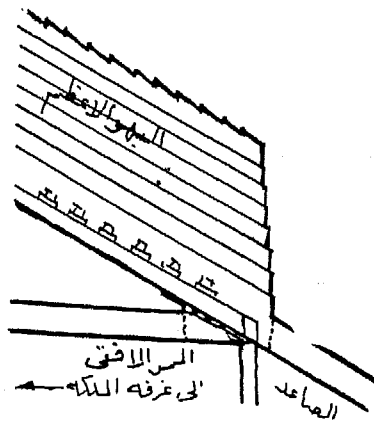 البهو الاعظم
الممر الافقى
الى غرفه الملكه
الصاعد